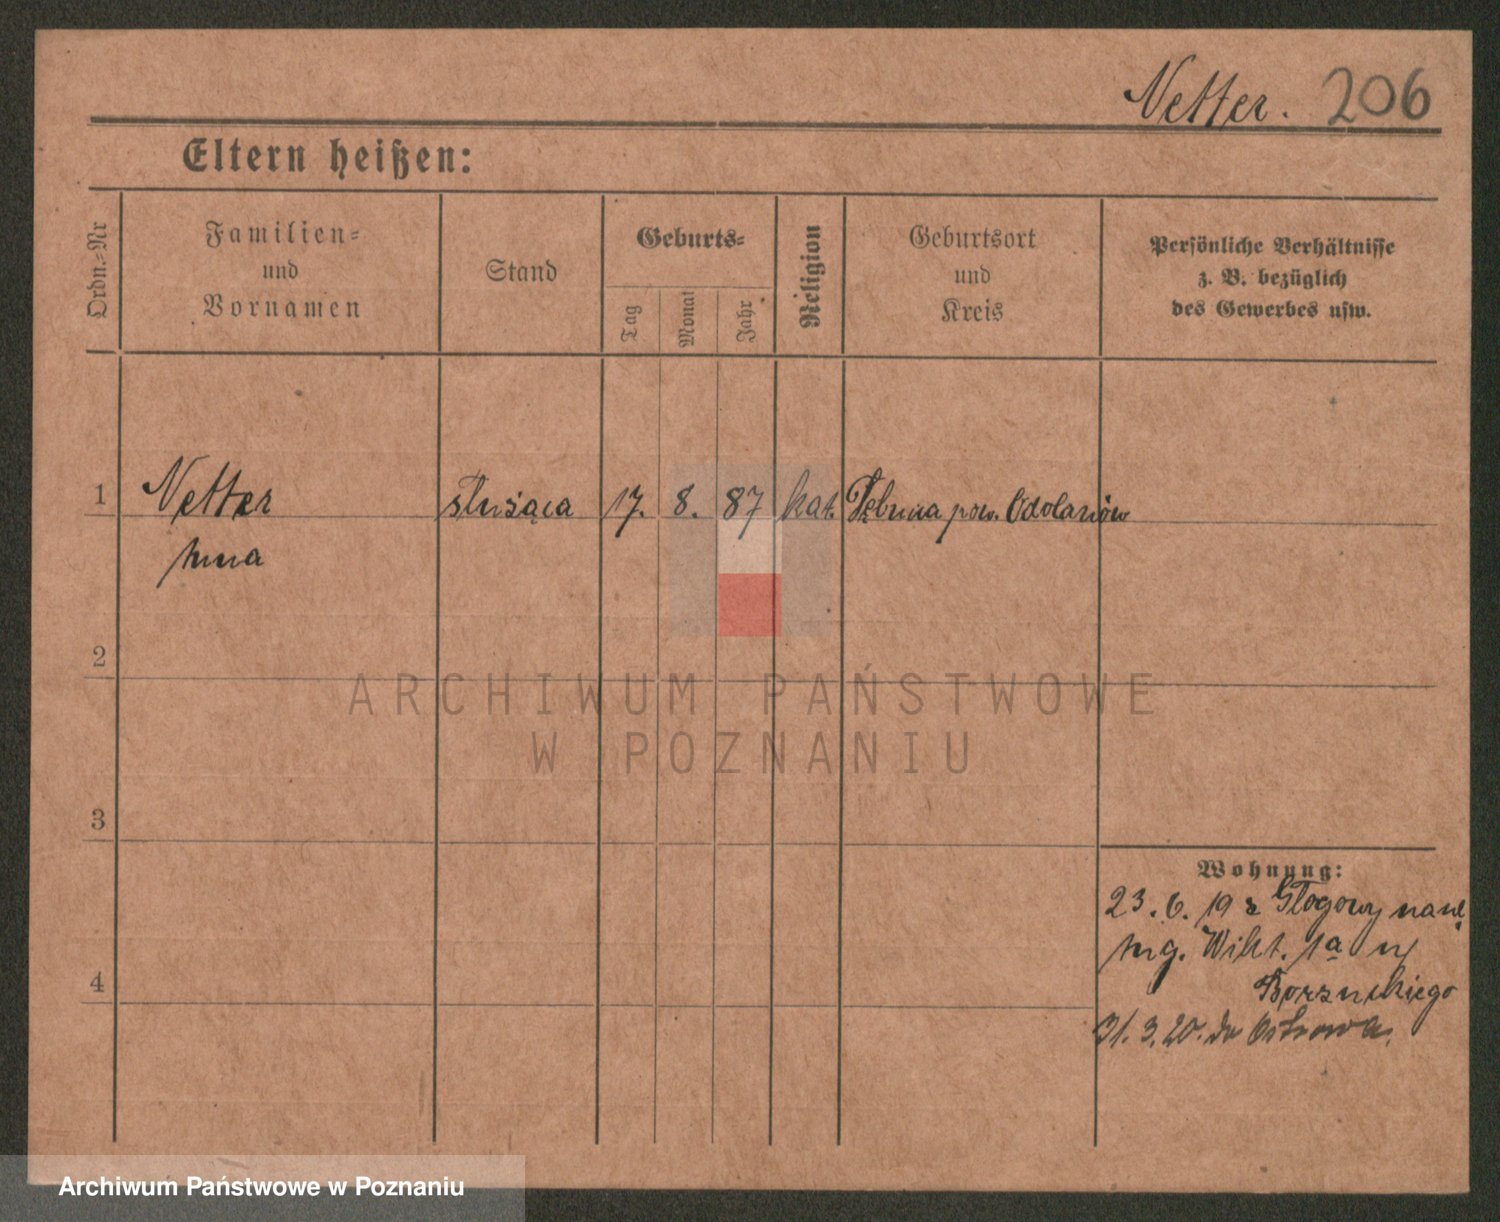 Netter. 206
Eltern heißen:
Ordn.-Nr
Familien-
und
Vornamen
Stand
Geburts-
Tag
Monat
Jahr
Religion
Geburtsort
und
Kreis
Persönliche Verhältnisse
z. B. bezüglich
des Gewerbes usw.
1 Netter służąca 17. 8. 87 kat. pow. Odolanów
Anna
2
ARCHIWUM PAŃSTWOWE
W POZNANIU
3
Wohnung:
23. 6. 19 z Głogowy
Wikt. 1a
4
31. 3. 20. do Ostrowa.
Archiwum Państwowe w Poznaniu